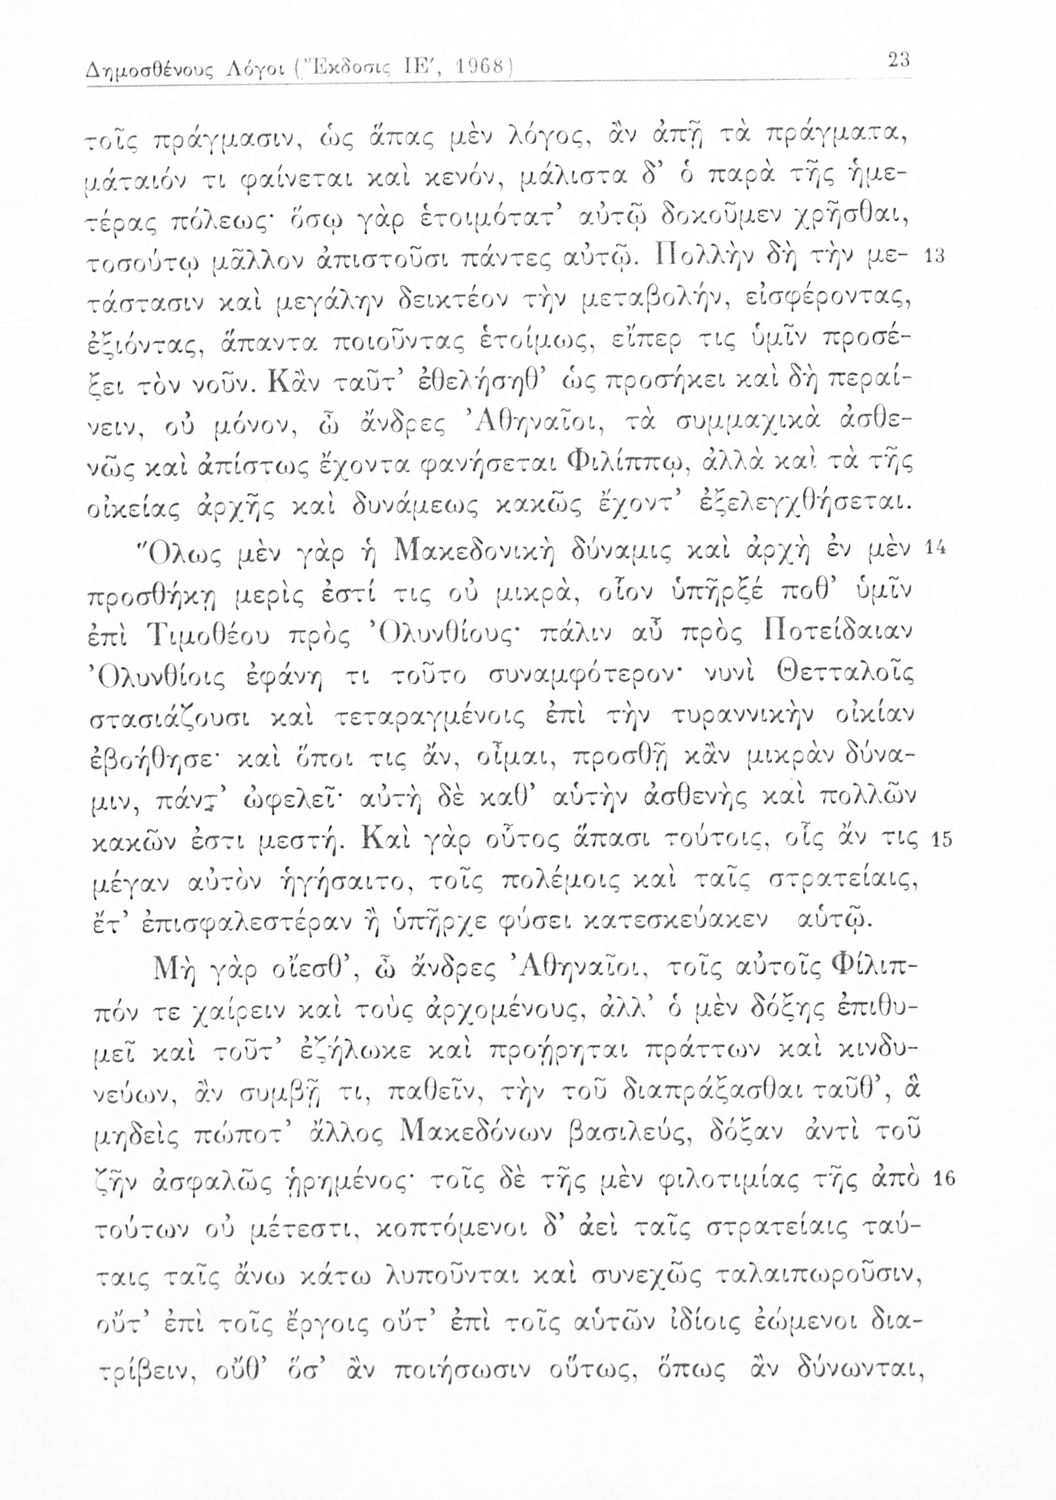 Δημοσθένους Λόγοι (Ἔκδοσις ΙΕ', 1968) 23
τοῖς πράγμασιν, ὡς ἅπας μὲν λόγος, ἂν ἀπῇ τὰ πράγματα,
μάταιόν τι φαίνεται καὶ κενόν, μάλιστα δ’ ὁ παρὰ τῆς ἡμε-
τέρας πόλεως· ὅσῳ γὰρ ἑτοιμότατ’ αὐτῷ δοκοῦμεν χρῆσθαι,
τοσούτῳ μᾶλλον ἀπιστοῦσι πάντες αὐτῷ. Πολλὴν δὴ τὴν με- 13
τάστασιν καὶ μεγάλην δεικτέον τὴν μεταβολήν, εἰσφέροντας,
ἐξιόντας, ἅπαντα ποιοῦντας ἑτοίμως, εἴπερ τις ὑμῖν προσέ-
ξει τὸν νοῦν. Κἂν ταῦτ’ ἐθελήσηθ’ ὡς προσήκει καὶ δὴ περαί-
νειν, οὐ μόνον, ὦ ἄνδρες Ἀθηναῖοι, τὰ συμμαχικὰ ἀσθε-
νῶς καὶ ἀπίστως ἔχοντα φανήσεται Φιλίππῳ, ἀλλὰ καὶ τὰ τῆς
οἰκείας ἀρχῆς καὶ δυνάμεως κακῶς ἔχοντ’ ἐξελεγχθήσεται.
Ὅλως μὲν γὰρ ἡ Μακεδονικὴ δύναμις καὶ ἀρχὴ ἐν μὲν 14
προσθήκῃ μερὶς ἐστί τις οὐ μικρὰ, οἷον ὑπῆρξέ ποθ’ ὑμῖν
ἐπὶ Τιμοθέου πρὸς Ὀλυνθίους· πάλιν αὖ πρὸς Ποτείδαιαν
Ὀλυνθίοις ἐφάνη τι τοῦτο συναμφότερον· νυνὶ Θετταλοῖς
στασιάζουσι καὶ τεταραγμένοις ἐπὶ τὴν τυραννικὴν οἰκίαν
ἐβοήθησε· καὶ ὅποι τις ἄν, οἶμαι, προσθῇ κἂν μικρὰν δύνα-
μιν, πάντ’ ὠφελεῖ· αὐτὴ δὲ καθ’ αὑτὴν ἀσθενὴς καὶ πολλῶν
κακῶν ἐστι μεστή. Καὶ γὰρ οὗτος ἅπασι τούτοις, οἷς ἄν τις 15
μέγαν αὐτὸν ἡγήσαιτο, τοῖς πολέμοις καὶ ταῖς στρατείαις,
ἔτ’ ἐπισφαλεστέραν ἢ ὑπῆρχε φύσει κατεσκεύακεν αὑτῷ.
Μὴ γὰρ οἴεσθ’, ὦ ἄνδρες Ἀθηναῖοι, τοῖς αὐτοῖς Φίλιπ-
πόν τε χαίρειν καὶ τοὺς ἀρχομένους, ἀλλ’ ὁ μὲν δόξης ἐπιθυ-
μεῖ καὶ τοῦτ’ ἐζήλωκε καὶ προῄρηται πράττων καὶ κινδυ-
νεύων, ἂν συμβῇ τι, παθεῖν, τὴν τοῦ διαπράξασθαι ταῦθ’, ἃ
μηδεὶς πώποτ’ ἄλλος Μακεδόνων βασιλεύς, δόξαν ἀντὶ τοῦ
ζῆν ἀσφαλῶς ᾑρημένος· τοῖς δὲ τῆς μὲν φιλοτιμίας τῆς ἀπὸ 16
τούτων οὐ μέτεστι, κοπτόμενοι δ’ ἀεὶ ταῖς στρατείαις ταύ-
ταις ταῖς ἄνω κάτω λυποῦνται καὶ συνεχῶς ταλαιπωροῦσιν,
οὔτ’ ἐπὶ τοῖς ἔργοις οὔτ’ ἐπὶ τοῖς αὑτῶν ἰδίοις ἐώμενοι δια-
τρίβειν, οὔθ’ ὅσ’ ἂν ποιήσωσιν οὕτως, ὅπως ἂν δύνωνται,